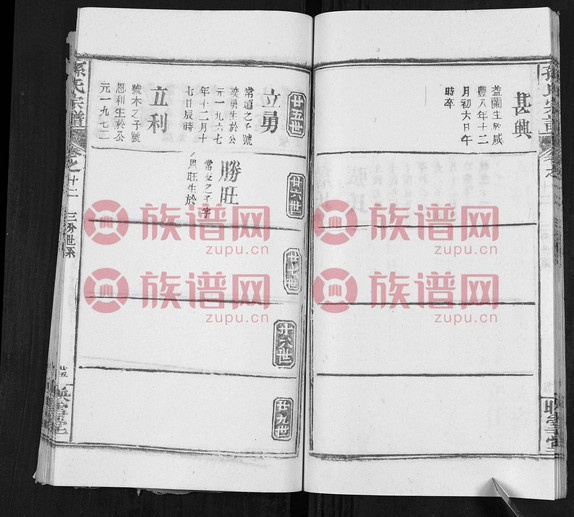 甚興
益蘭生於咸
豐八年十二
月初六日午
時卒
廿五世
立勇
常道之子號
後勇生於公
元一九六七
年十二月十
七日辰時
立利
號木之子號
恩利生於公
元一九七二
廿六世
勝旺
常友之子字
廿七世
廿八世
廿九世
孫氏宗譜
卷之十二
三分世系
映雪堂
族谱网
zupu.cn
族谱网
zupu.cn
族谱网
zupu.cn
族谱网
zupu.cn